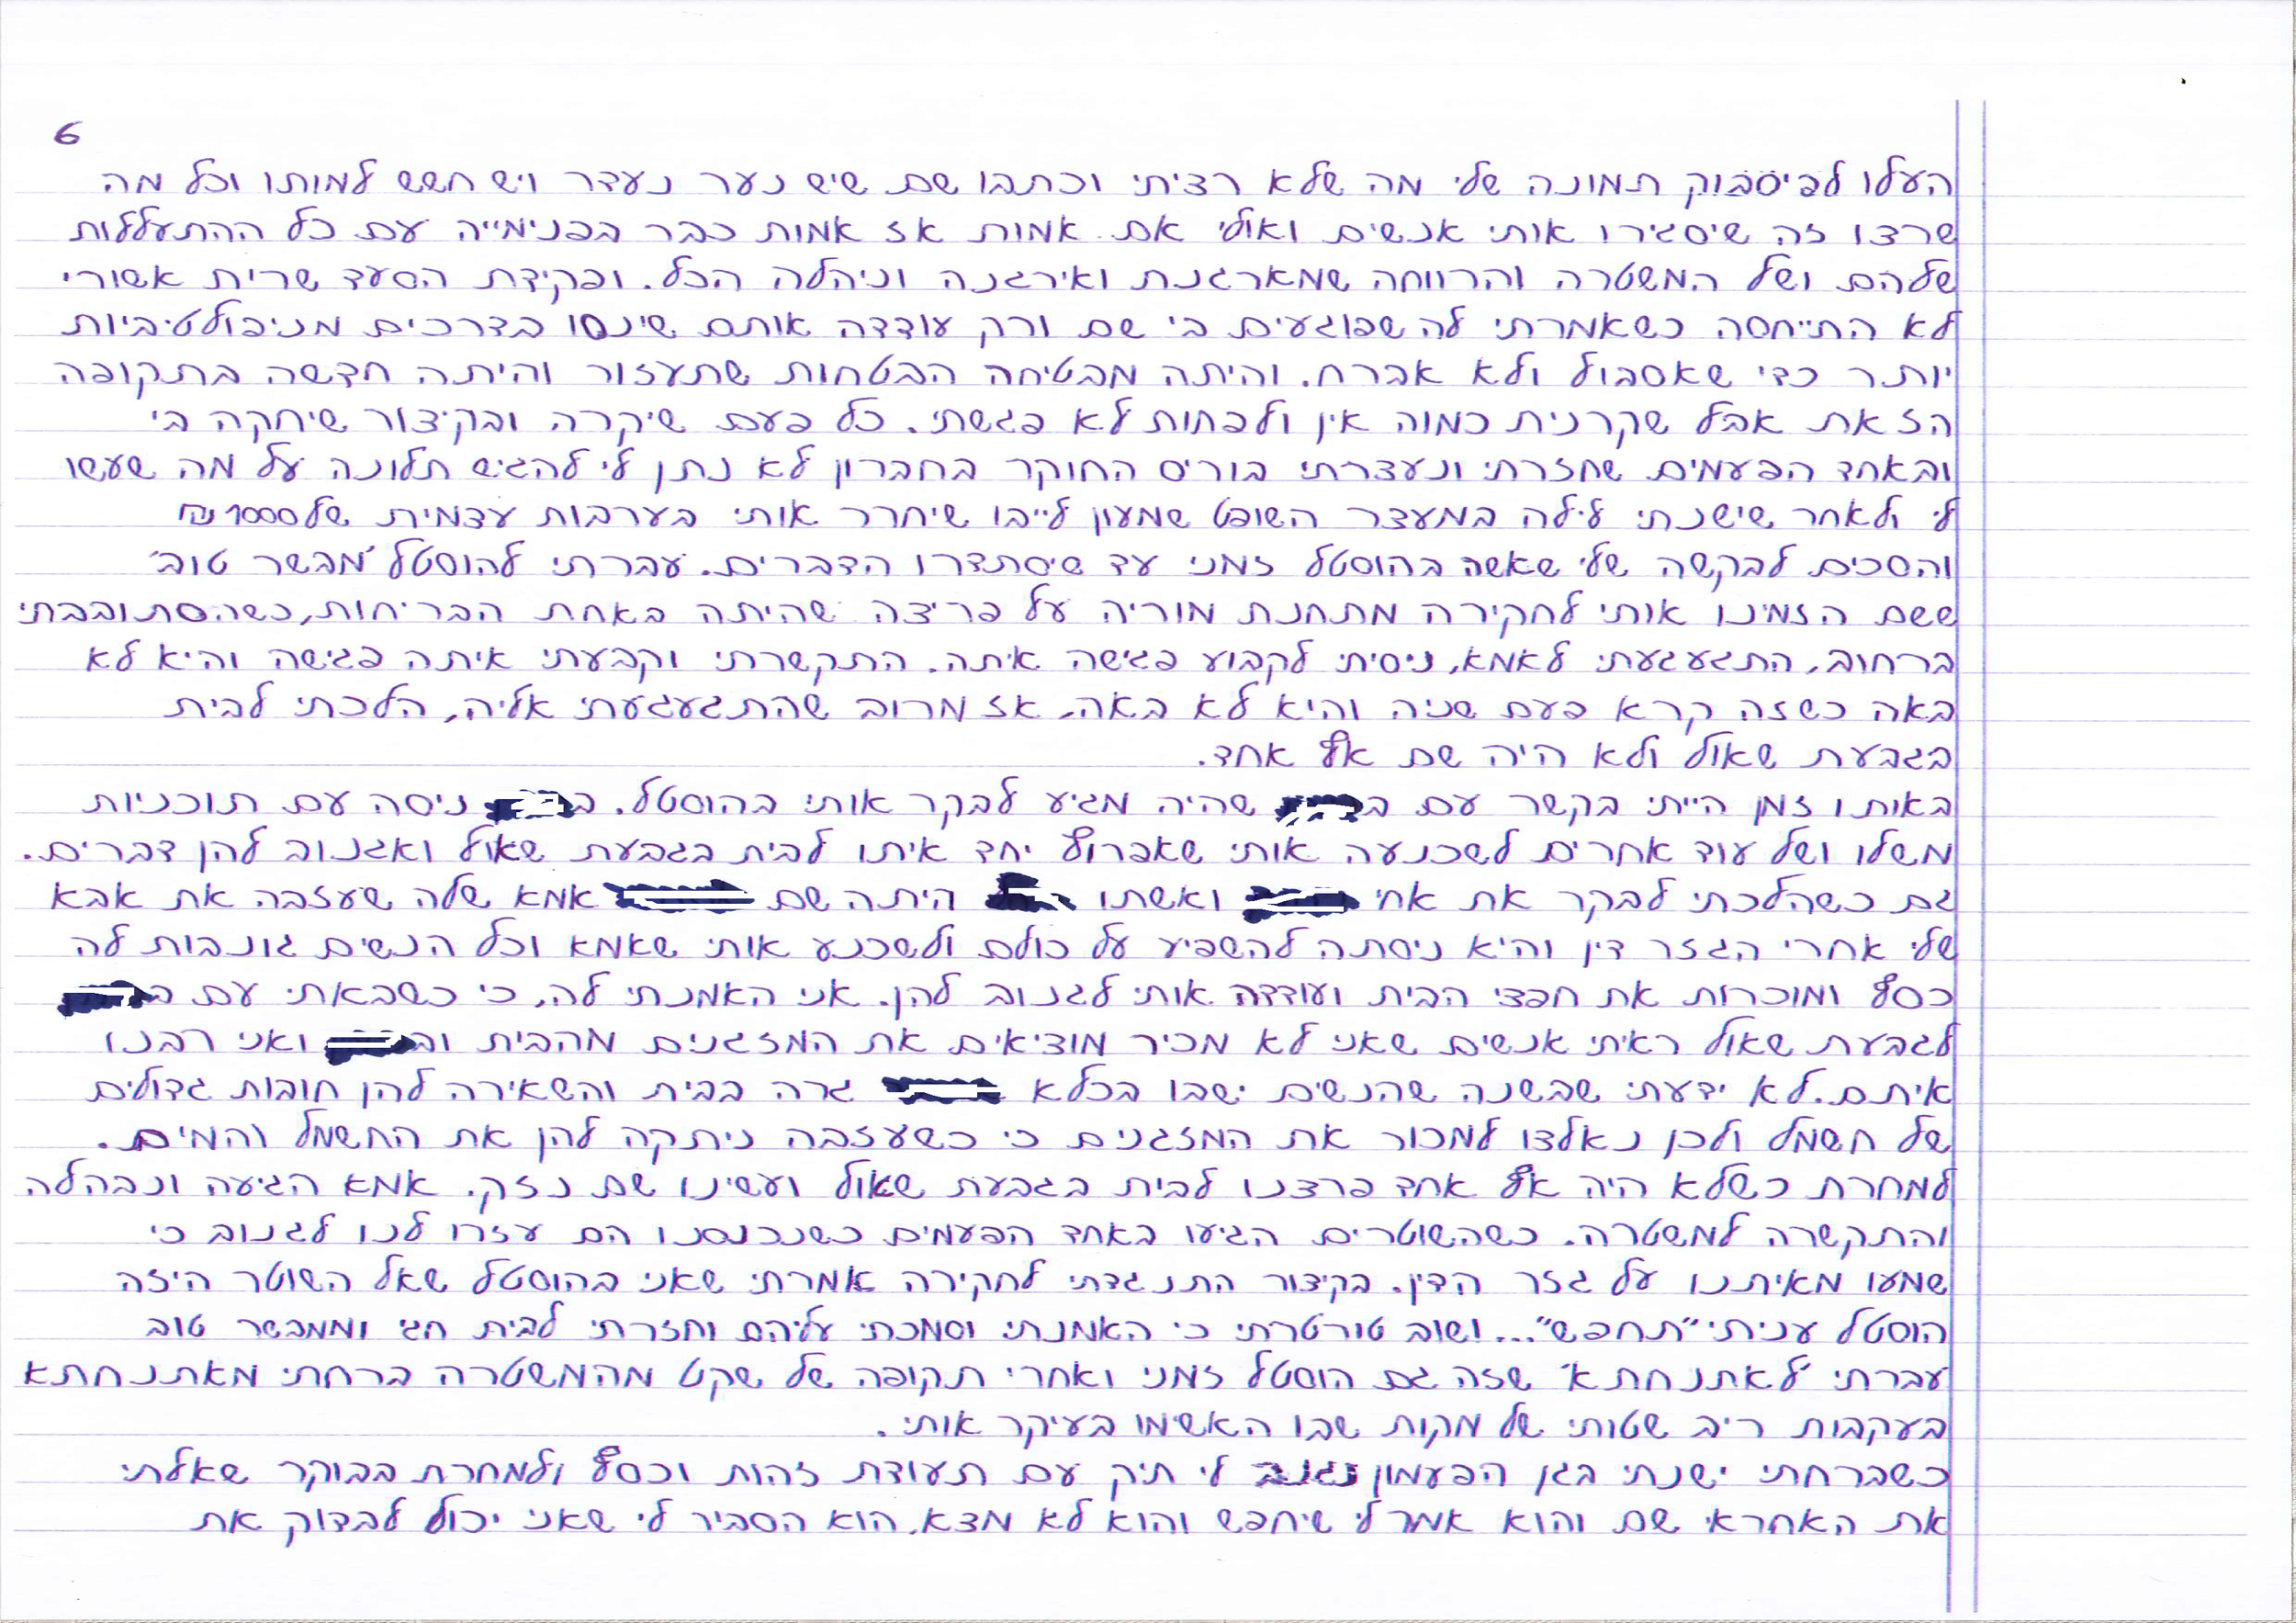 6
העלו לפיסבוק תמונה שלי מה שלא רציתי וכתבו שם שיש נער נעדר ויש חשש למותו וכל מה
שרצו זה שיסגירו אותי אנשים ואולי אם אמות אז אמות כבר בפנימייה עם כל ההתעללות
שלהם ושל המשטרה והרווחה שמארגנת ואירגנה וניהלה הכל. ופקידת הסעד שרית אשורי
לא התייחסה כשאמרתי לה שפוגעים בי שם ורק עודדה אותם שינסו בדרכים מניפולטיביות
יותר כדי שאסבול ולא אברח. והיתה מבטיחה הבטחות שתעזור והיתה חדשה בתקופה
הזאת אבל שקרנית כמוה אין ולפחות לא פגשתי. כל פעם שיקרה ובקיצור שיחקה בי
ובאחד הפעמים שחזרתי ונעצרתי בוריס החוקר בחברון לא נתן לי להגיש תלונה על מה שעשו
לי ולאחר שישנתי לילה במעצר השופט שמעון לייבו שיחרר אותי בערבות עצמית של 1000 ₪
והסכים לבקשה שלי שאשה בהוסטל זמני עד שיסתדרו הדברים. עברתי להוסטל 'מבשר טוב'
ששם הזמינו אותי לחקירה מתחנת מוריה על פריצה שהיתה באחת הבריחות, כשהסתובבתי
ברחוב, התגעגעתי לאמא, ניסיתי לקבוע פגישה איתה. התקשרתי וקבעתי איתה פגישה והיא לא
באה כשזה קרא פעם שניה והיא לא באה, אז מרוב שהתגעגעתי אליה, הלכתי לבית
בגבעת שאול ולא היה שם אף אחד.
באותו זמן הייתי בקשר עם ב שהיה מגיע לבקר אותי בהוסטל. ב ניסה עם תוכניות
משלו ושל עוד אחרים לשכנעה אותי שאפרוץ יחד איתו לבית בגבעת שאול ואגנוב להן דברים.
גם כשהלכתי לבקר את אחי ואשתו היתה שם אמא שלה שעזבה את אבא
שלי אחרי הגזר דין והיא ניסתה להשפיע על כולם ולשכנע אותי שאמא וכל הנשים גונבות לה
כסף ומוכרות את חפצי הבית ועודדה אותי לגנוב להן. אני האמנתי לה, כי כשבאתי עם ב
לגבעת שאול ראיתי אנשים שאני לא מכיר מוציאים את המזגנים מהבית וב ואני רבנו
איתם. לא ידעתי שבשנה שהנשים ישבו בכלא גרה בבית והשאירה להן חובות גדולים
של חשמל ולכן נאלצו למכור את המזגנים כי כשעזבה ניתקה להן את החשמל והמים.
למחרת כשלא היה אף אחד פרצנו לבית בגבעת שאול ועשינו שם נזק. אמא הגיעה ונבהלה
והתקשרה למשטרה. כשהשוטרים הגיעו באחד הפעמים כשנכנסנו הם עזרו לנו לגנוב כי
שמעו מאיתנו על גזר הדין. בקיצור התנגדתי לחקירה אמרתי שאני בהוסטל שאל השוטר היזה
הוסטל עניתי "תחפש"... ושוב טורטרתי כי האמנתי וסמכתי עליהם וחזרתי לבית חגי וממבשר טוב
עברתי 'לאתנחתא' שזה גם הוסטל זמני ואחרי תקופה של שקט מהמשטרה ברחתי מאתנחתא
בעקבות ריב שטותי של מקות שבו האשימו בעיקר אותי.
כשברחתי ישנתי בגן הפעמון נגנב לי תיק עם תעודת זהות וכסף ולמחרת בבוקר שאלתי
את האחראי שם והוא אמר לי שיחפש והוא לא מצא. הוא הסביר לי שאני יכול לבדוק את